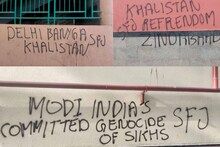 DELHI BANEGA
KHALISTAN SFJ
KHALISTAN
SFJ REFRENDUM
ZINDABAAD
MODI INDIA'S
COMMITTED GENOCIDE SFJ
OF SIKHS